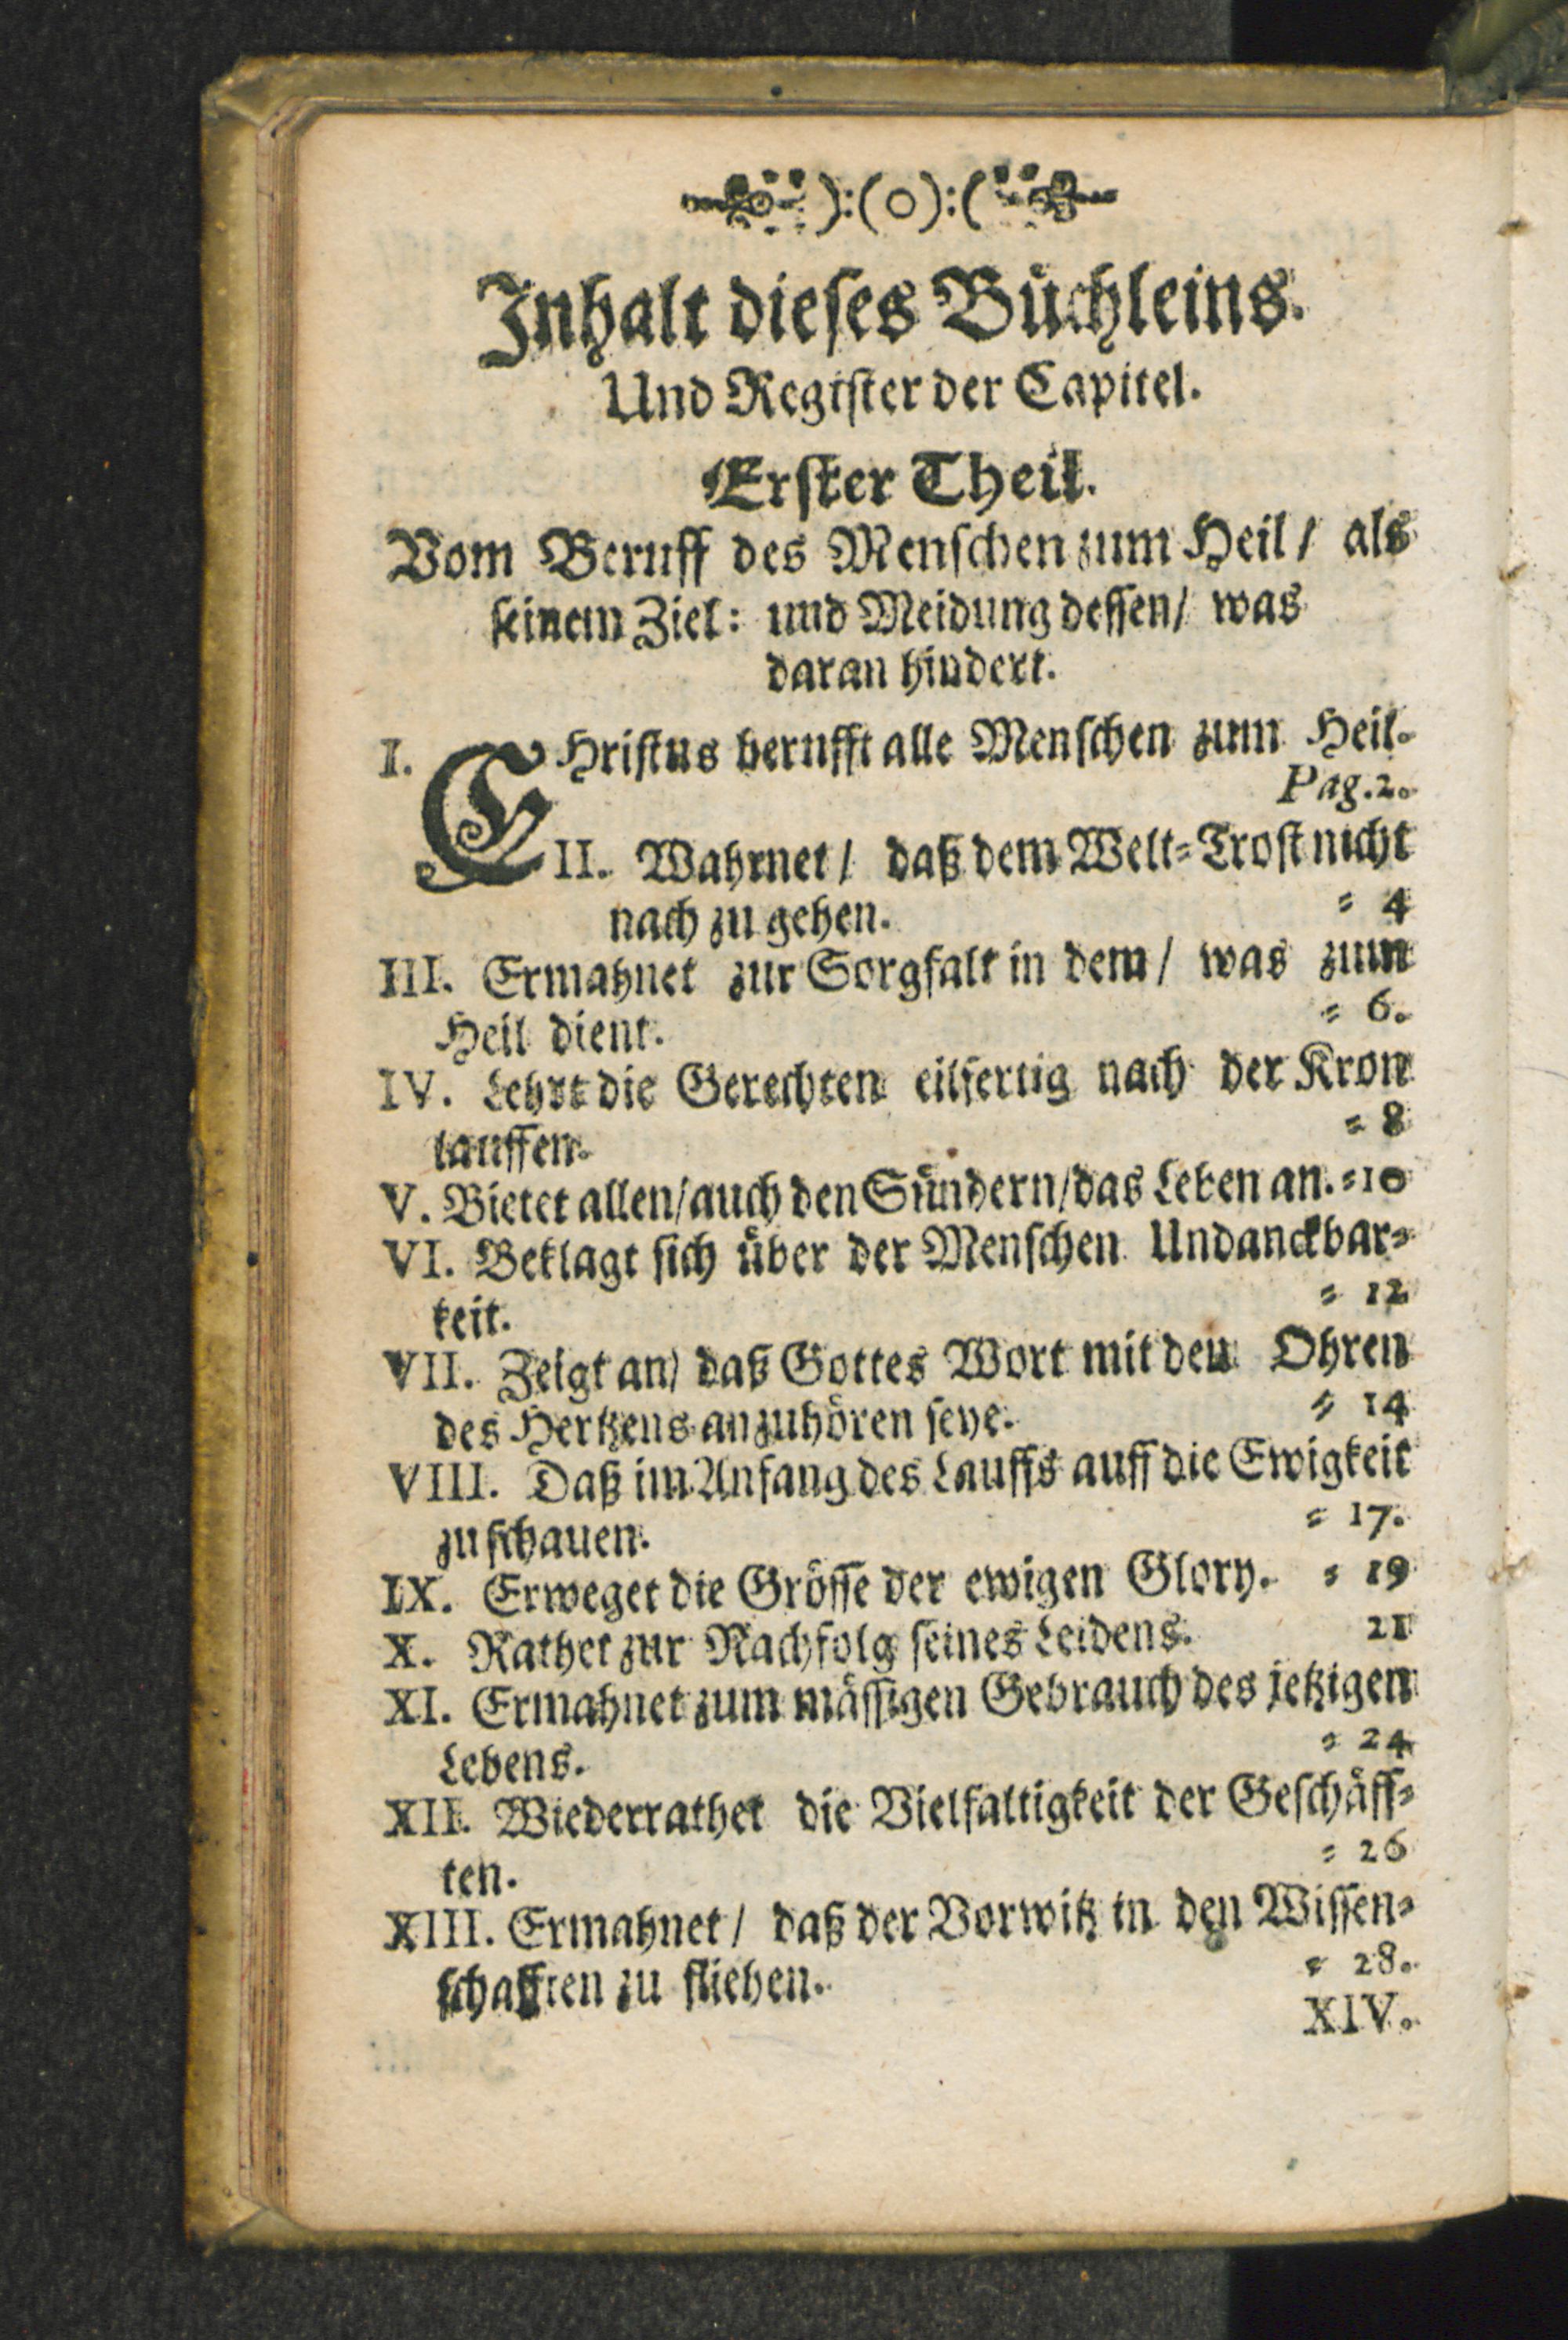 ):(o):(
Inhalt dieses Büchleins.
Und Register der Capitel.
Erster Theil.
Vom Beruff des Menschen zum Heil / als
seinem Ziel: und Meidung dessen / was
daran hindert.
I. CHristus berufft alle Menschen zum Heil.
Pag. 2.
II. Wahrnet / daß dem Welt-Trost nicht
nach zu gehen. = 4
III. Ermahnet zur Sorgfalt in dem / was zum
Heil dient. = 6.
IV. Lehrt die Gerechten eilfertig nach der Kron
lauffen. = 8
V. Bietet allen / auch den Sündern / das Leben an. = 10
VI. Beklagt sich über der Menschen Undanckbar=
keit. = 12
VII. Zeigt an / daß Gottes Wort mit den Ohren
des Hertzens anzuhören seye. = 14
VIII. Daß im Anfang des Lauffs auff die Ewigkeit
zu schauen. = 17.
IX. Erweget die Grösse der ewigen Glory. = 19
X. Rathet zur Nachfolg seines Leidens. 21
XI. Ermahnet zum mässigen Gebrauch des jetzigen
Lebens. = 24
XII. Wiederrathet die Vielfaltigkeit der Geschäff=
ten. = 26
XIII. Ermahnet / daß der Vorwitz in den Wissen=
schafften zu fliehen. = 28.
XIV.